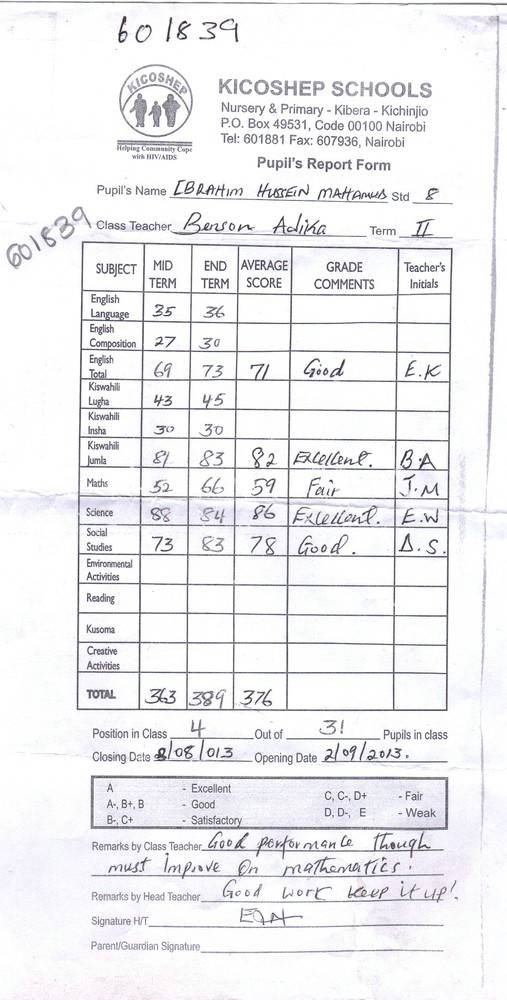 601839
KICOSHEP
Helping Community Cope
with HIV/AIDS
KICOSHEP SCHOOLS
Nursery & Primary - Kibera - Kichinjio
P.O. Box 49531, Code 00100 Nairobi
Tel: 601881 Fax: 607936, Nairobi
Pupil's Report Form
Pupil's Name IBRAHIM HUSSEIN MAHAMUD Std 8
601839
Class Teacher Benson Adika Term II
SUBJECT MID TERM END TERM AVERAGE SCORE GRADE COMMENTS Teacher's Initials
English Language 35 36
English Composition 27 30
English Total 69 73 71 Good E.K
Kiswahili Lugha 43 45
Kiswahili Insha 30 30
Kiswahili Jumla 81 83 82 Excellent. B.A
Maths 52 66 59 Fair J.M
Science 88 84 86 Excellent. E.W
Social Studies 73 83 78 Good. D.S.
Environmental Activities
Reading
Kusoma
Creative Activities
TOTAL 363 389 376
Position in Class 4 Out of 31 Pupils in class
Closing Date 8/08/013 Opening Date 2/09/2013.
A - Excellent C, C-, D+ - Fair
A-, B+, B - Good D, D-, E - Weak
B-, C+ - Satisfactory
Remarks by Class Teacher Good performance though
must improve on mathematics.
Remarks by Head Teacher Good work keep it up!.
Signature H/T
Parent/Guardian Signature